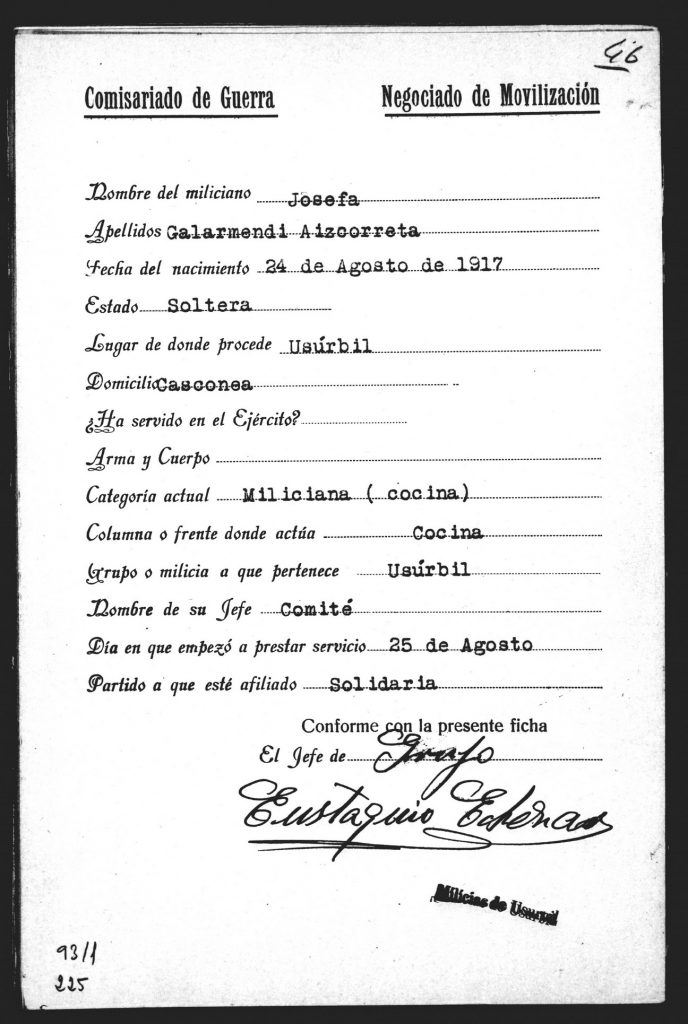 Comisariado de Guerra Negociado de Movilización
Nombre del miliciano Josefa
Apellidos Galarmendi Aizcorreta
Fecha del nacimiento 24 de Agosto de 1917
Estado Soltera
Lugar de donde procede Usúrbil
Domicilio Casconea
¿Ha servido en el Ejército?
Arma y Cuerpo
Categoría actual Miliciana ( cocina)
Columna o frente donde actúa Cocina
Grupo o milicia a que pertenece Usúrbil
Nombre de su Jefe Comité
Día en que empezó a prestar servicio 25 de Agosto
Partido a que esté afiliado Solidaria
Conforme con la presente ficha
El Jefe de Grupo
Eustaquio
Milicias de Usurbil
93/1
225